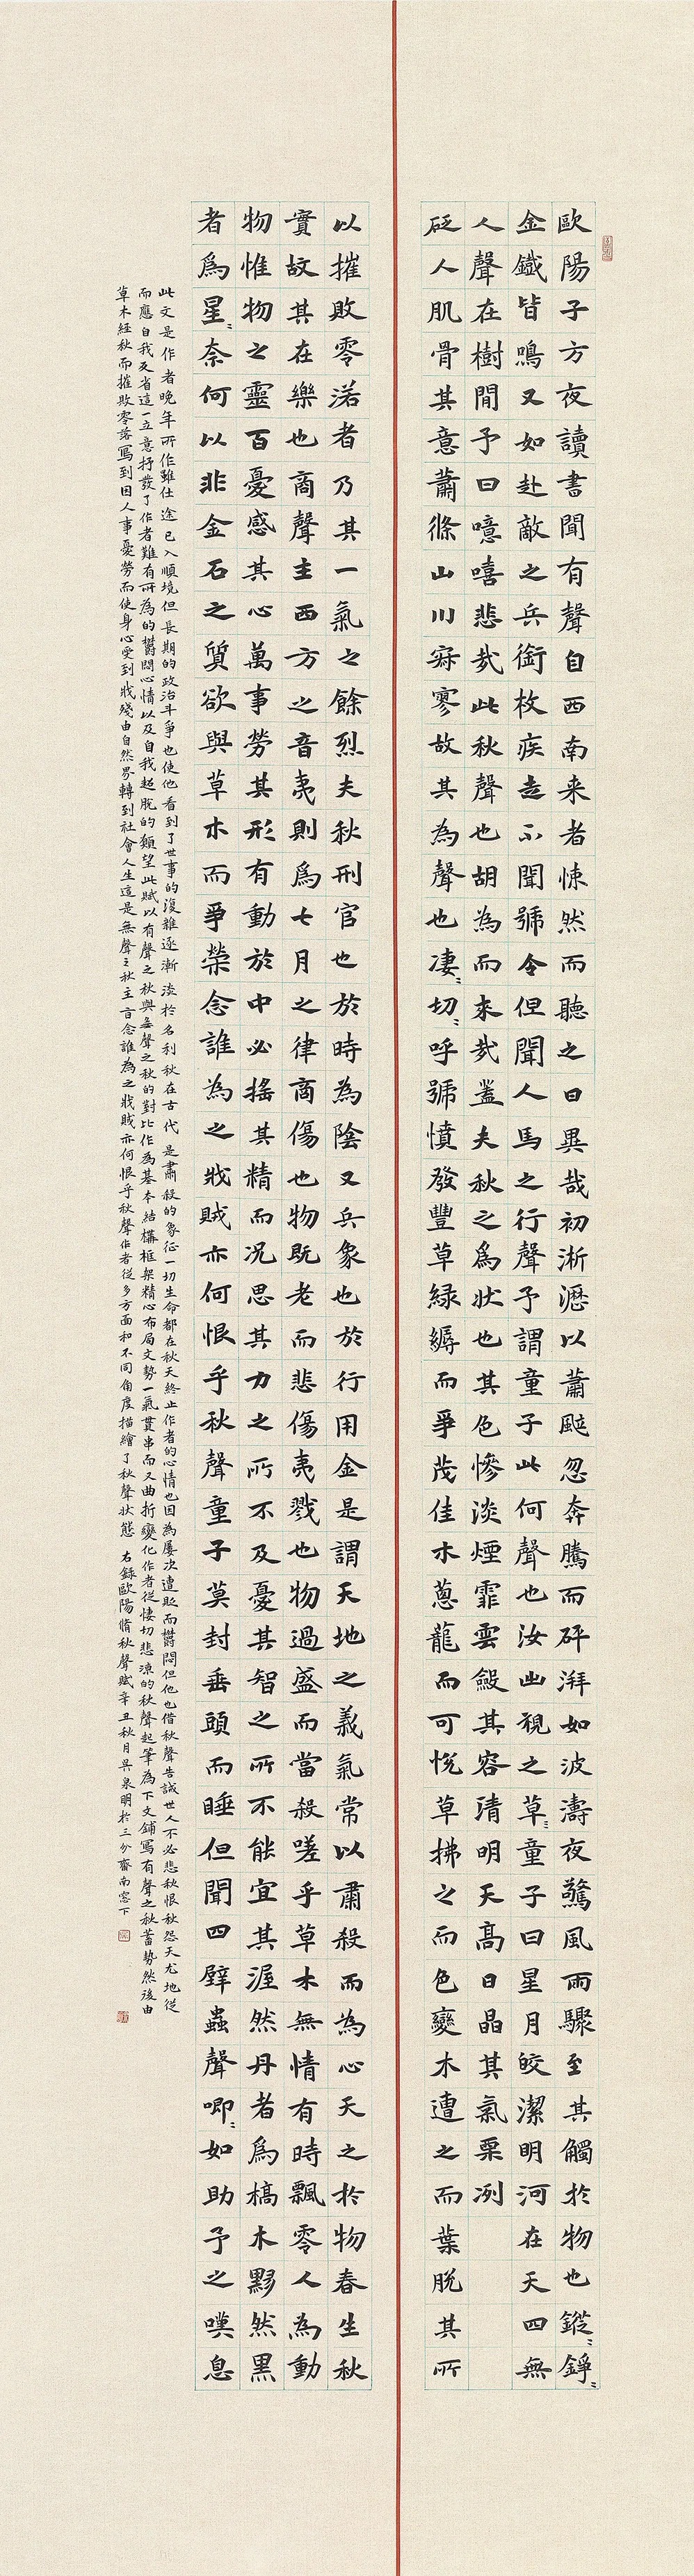 歐陽子方夜讀書聞有聲自西南来者悚然而聽之曰異哉初淅瀝以蕭颯忽奔騰而砰湃如波濤夜驚風雨驟至其觸於物也鏦〻錚〻
金鐵皆鳴又如赴敵之兵銜枚疾走不聞號令但聞人馬之行聲予謂童子此何聲也汝出視之草〻童子曰星月皎潔明河在天四無
人聲在樹間予曰噫嘻悲哉此秋聲也胡為而来哉蓋夫秋之為狀也其色慘淡煙霏雲斂其容清明天高日晶其氣栗冽
砭人肌骨其意蕭條山川寂寥故其為聲也淒〻切〻呼號憤發豐草綠縟而爭茂佳木蔥龍而可悅草拂之而色變木遭之而葉脫其所
以摧敗零落者乃其一氣之餘烈夫秋刑官也於時為陰又兵象也於行用金是謂天地之義氣常以肅殺而為心天之於物春生秋
實故其在樂也商聲主西方之音夷則為七月之律商傷也物既老而悲傷夷戮也物過盛而當殺嗟乎草木無情有時飄零人為動
物惟物之靈百憂感其心萬事勞其形有動於中必搖其精而況思其力之所不及憂其智之所不能宜其渥然丹者為槁木黟然黑
者為星〻奈何以非金石之質欲與草木而爭榮念誰為之戕賊亦何恨乎秋聲童子莫封垂頭而睡但聞四壁蟲聲唧〻如助予之嘆息
此文是作者晚年所作雖仕途已入順境但長期的政治斗爭也使他看到了世事的復雜逐漸淡於名利秋在古代是肅殺的象征一切生命都在秋天終止作者的心情也因為屢次遭貶而鬱悶但他也借秋聲告誡世人不必悲秋恨秋怨天尤地從
而應自我反省這一立意抒發了作者難有所為的鬱悶心情以及自我超脫的願望此賦以有聲之秋與無聲之秋的對比作為基本結構框架精心布局文勢一氣貫串而又曲折變化作者從悽切悲涼的秋聲起筆為下文鋪寫有聲之秋蓄勢然後由
草木經秋而摧敗零落寫到因人事憂勞而使身心受到戕殘由自然界轉到社會人生這是無聲之秋主旨念誰為之戕賊亦何恨乎秋聲作者從多方面和不同角度描繪了秋聲狀態 右錄歐陽脩秋聲賦辛丑秋月吳泉明於三分齋南窗下